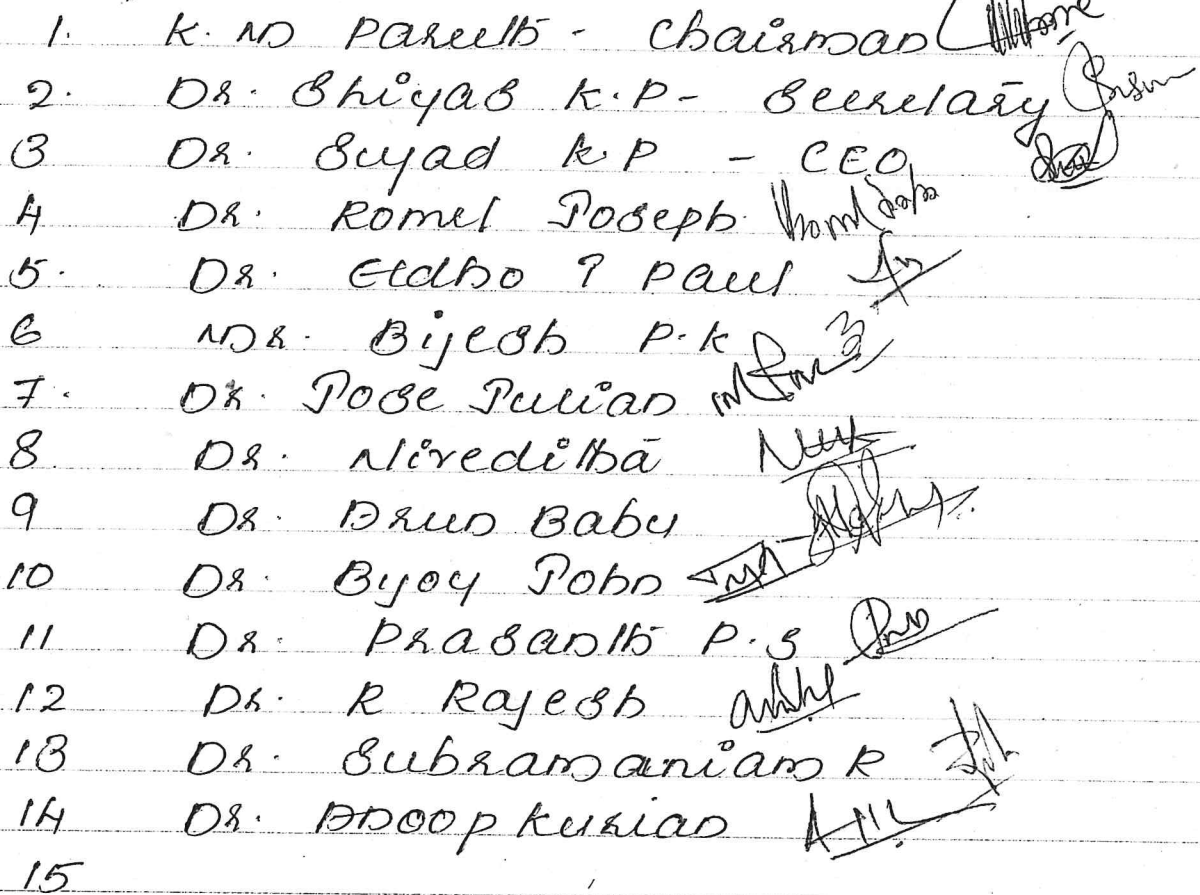 1. K. M Pareeth - Chairman
2. Dr. Shiyas K.P - Secretary
3 Dr. Suyad K.P - CEO
4 Dr. Romel Joseph
5. Dr. Eldho T Paul
6 Mr. Bijesh P.K
7. Dr. Jose Julian
8 Dr. Niveditha
9 Dr. Arun Baby
10 Dr. Byoy John
11 Dr. Prasanth P.S
12 Dr. R Rajesh
13 Dr. Subramaniam R
14 Dr. Anoop Kurian
15